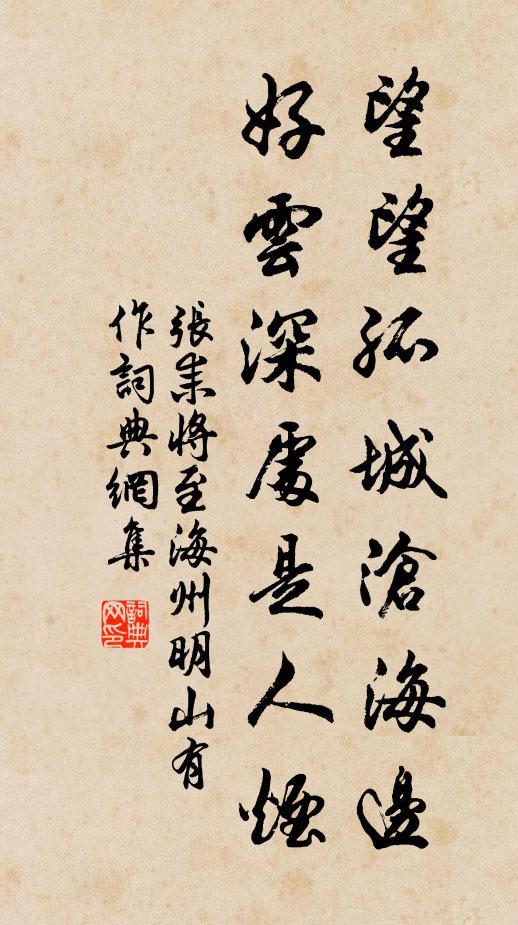 望望孤城滄海邊
好雲深處是人煙
張耒將至海州明山有
作詞典網集
詞典网印